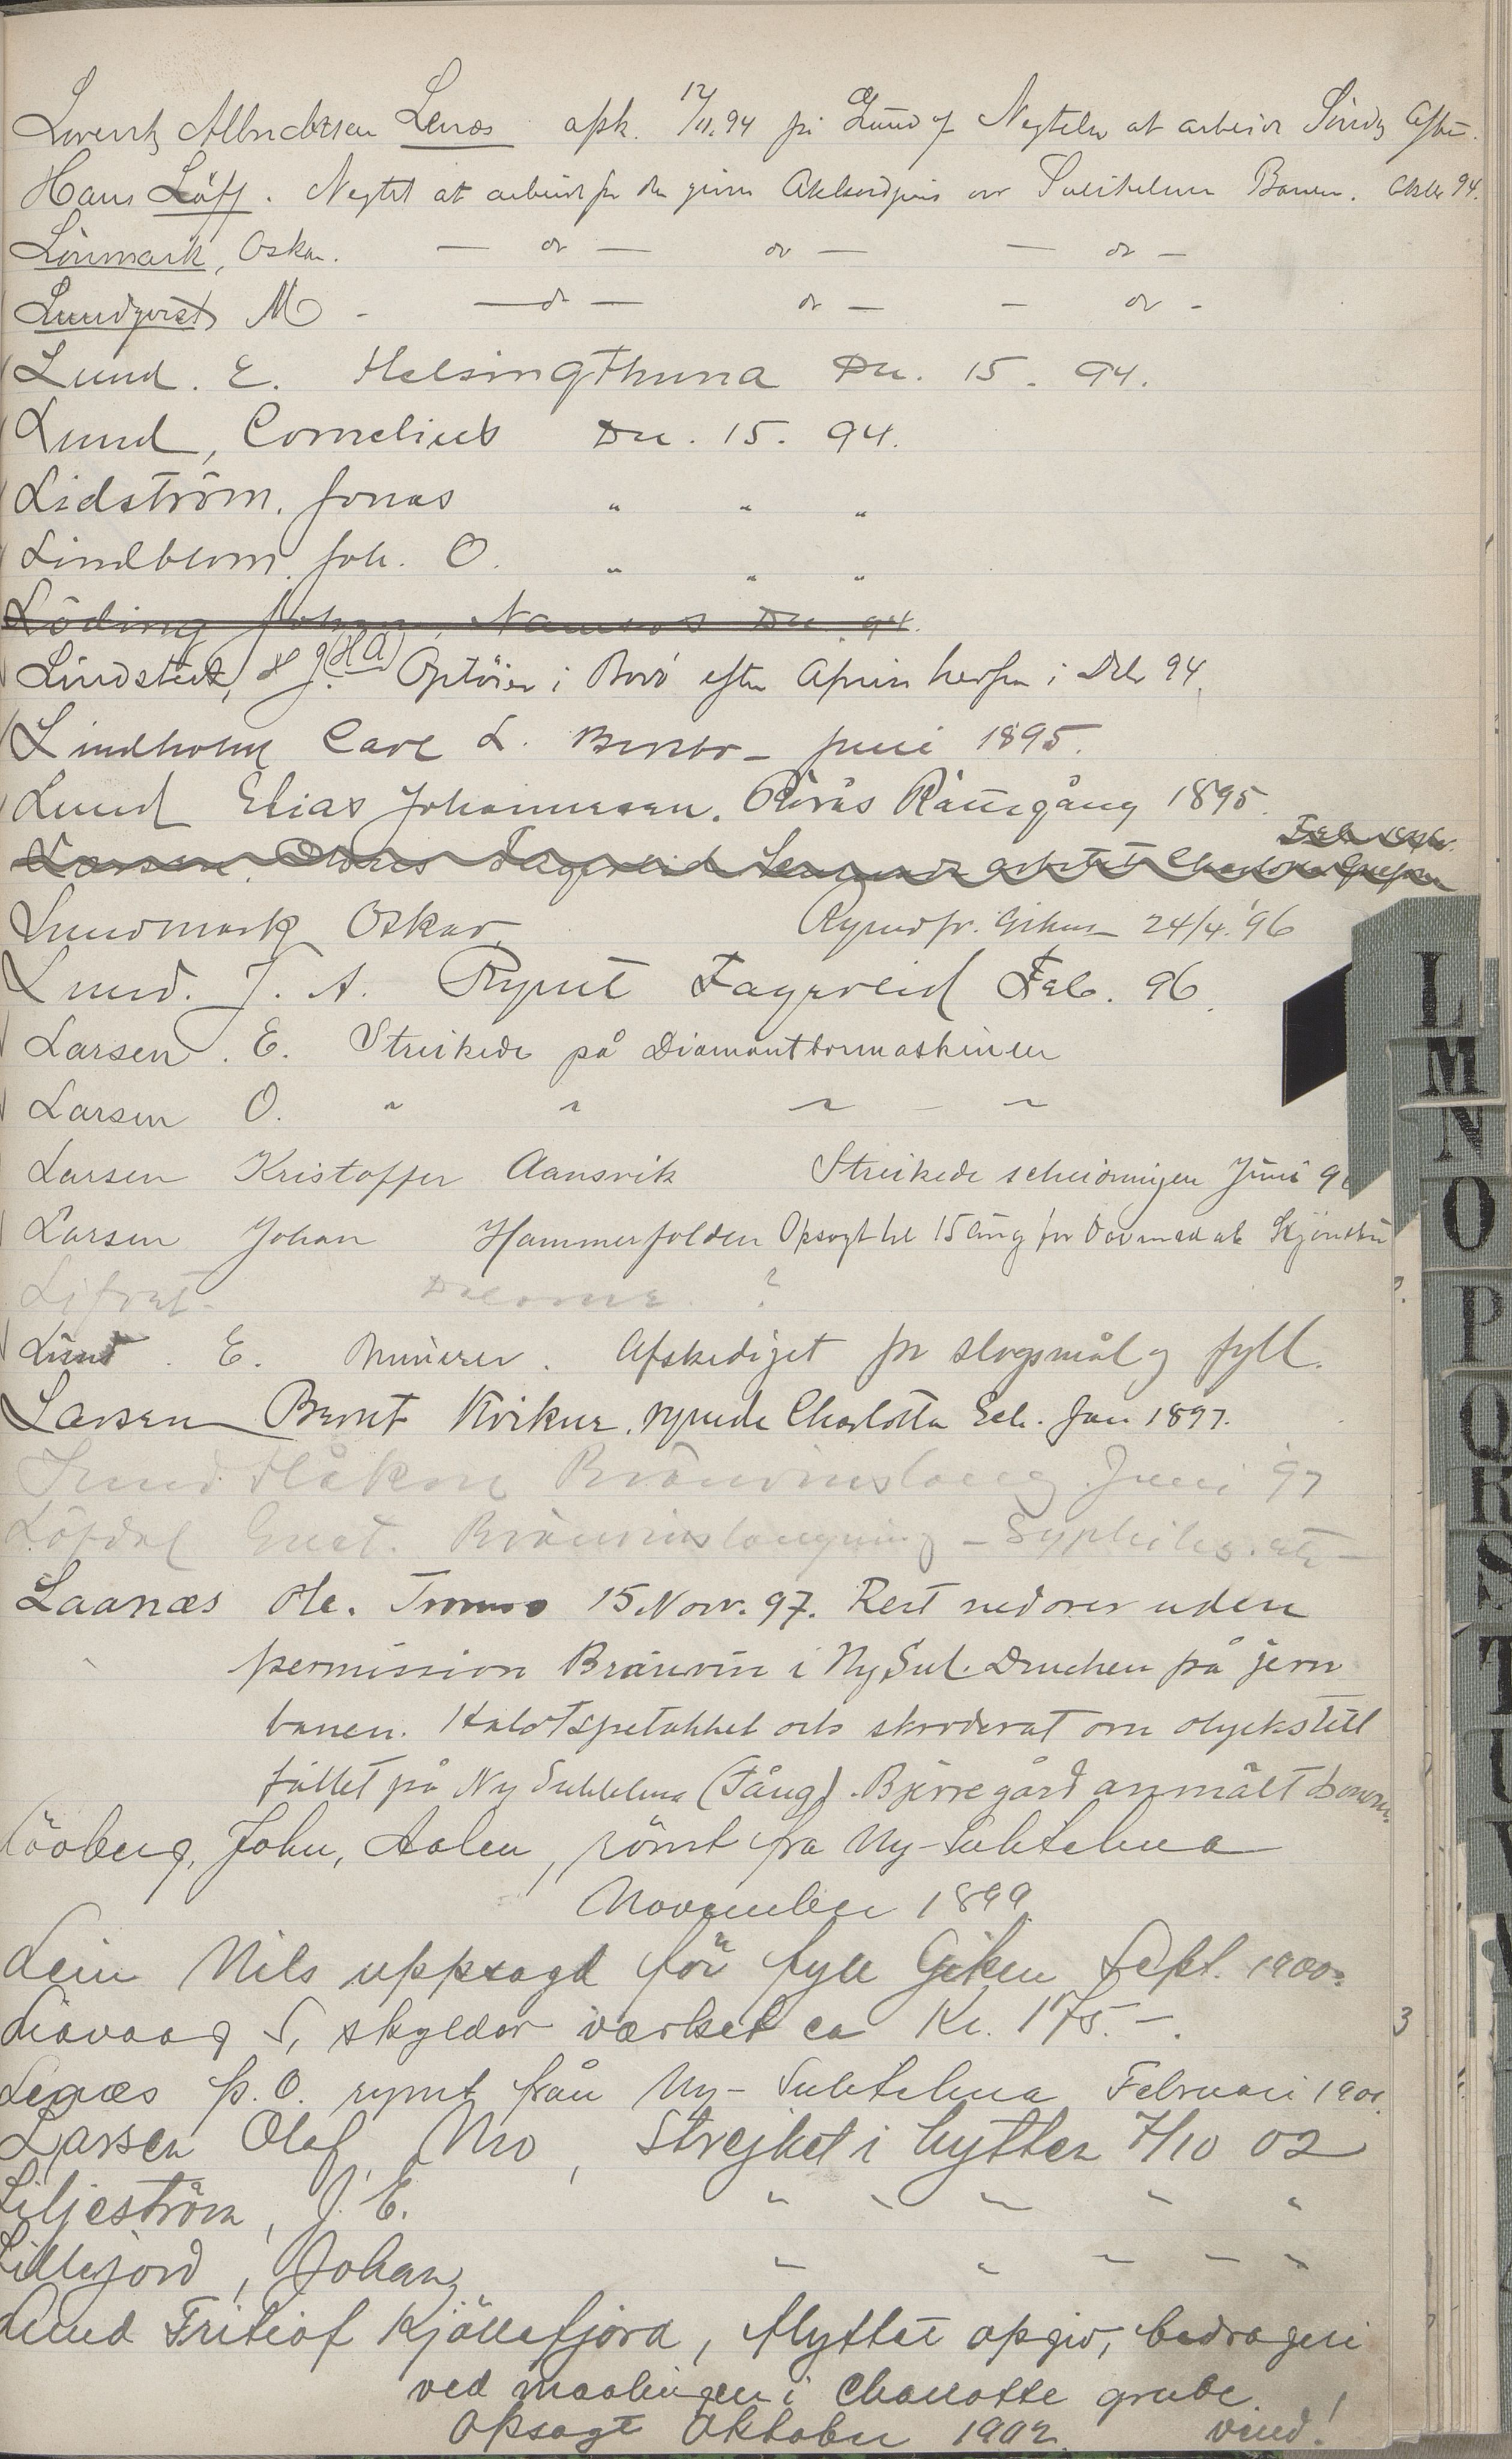 Lorentz Albrichtsen Lenæs afsk. 12/11.94 på Grund af Negtelse at arbeide Söndg Aften.
Hans Löff. Negtet at arbeide for den givne Akkordpris ov Sulitelma Banen. Oktbr 94.
Lönmark, Oskar. — do — do — — do —
Lundqvist M - — do — do — — do -
Lund. E. Helsingthuna Dec. 15. 94.
Lund, Cornelius Dec. 15. 94.
Lidström, Jonas " " "
Lindblom, Joh. O. " " "
Löding Johan, Namsos Dec. 94.
Lindstedt, H J. (H A) Optöier i Bodö efter Afreise herfra i Dcbr 94.
Lindholm Carl L. Juni 1895.
Lund Elias Johannesen. Rörås Råttegång 1895.
Larsen. Fagerlid Charlotta Grufva Feb.
Lundmark Oskar, Rymd fr. Giken 24/4.'96
Lund. J. A. Rymt Fagerlid Feb. 96.
Larsen. E. Streikede på Diamantbormaskinen
Larsen O. " " " "
Larsen Kristoffer Aansvik Streikede scheidningen Juni 96
Larsen Johan Hammerfolden Opsagt til 15 Aug for Dovenskab Skjönstu
?
Lund. E. Minerer. Afskediget for slagsmål og fyll.
Larsen Bernt Kvikne, rymde Charlotta Feb. Jan 1897.
Lund Håkon Brännvinslang Juni 97
Löfdal Gust. Brännvinslangning - Syphilis. etc -
Laanæs Ole. Tromsö 15 Nov. 97. Rest nedover uden
permission Brännvin i Ny Sul. Drucken på jern
banen. Haldt spetakkel och skvadrat om olyckstill
fället på Ny Sulitelma (Tång). Bjerregård anmält honom.
Lööberg, John, Aalen, römt fra Ny-Sulitelma
November 1899
Lein Nils uppsagd för fyll Giken Sept. 1900.
Liavaag S, skyldar værket ca Kr. 175.-.
Legæs P. O. rymt från Ny-Sulitelma Februari 1901.
Larsen Olaf, Mo, Strejket i hytten 7/10 02
Liljeström, J. E. " " " " "
Lillefjord, Johan, " " " " "
Lund Fritiof Kjöllefjord, flyttet opgiv, bedrageri
ved maalingen i Charlotte grube.
Opsagt Oktober 1902. vend!
3
L
M
N
O
P
Q
R
S
T
U
V